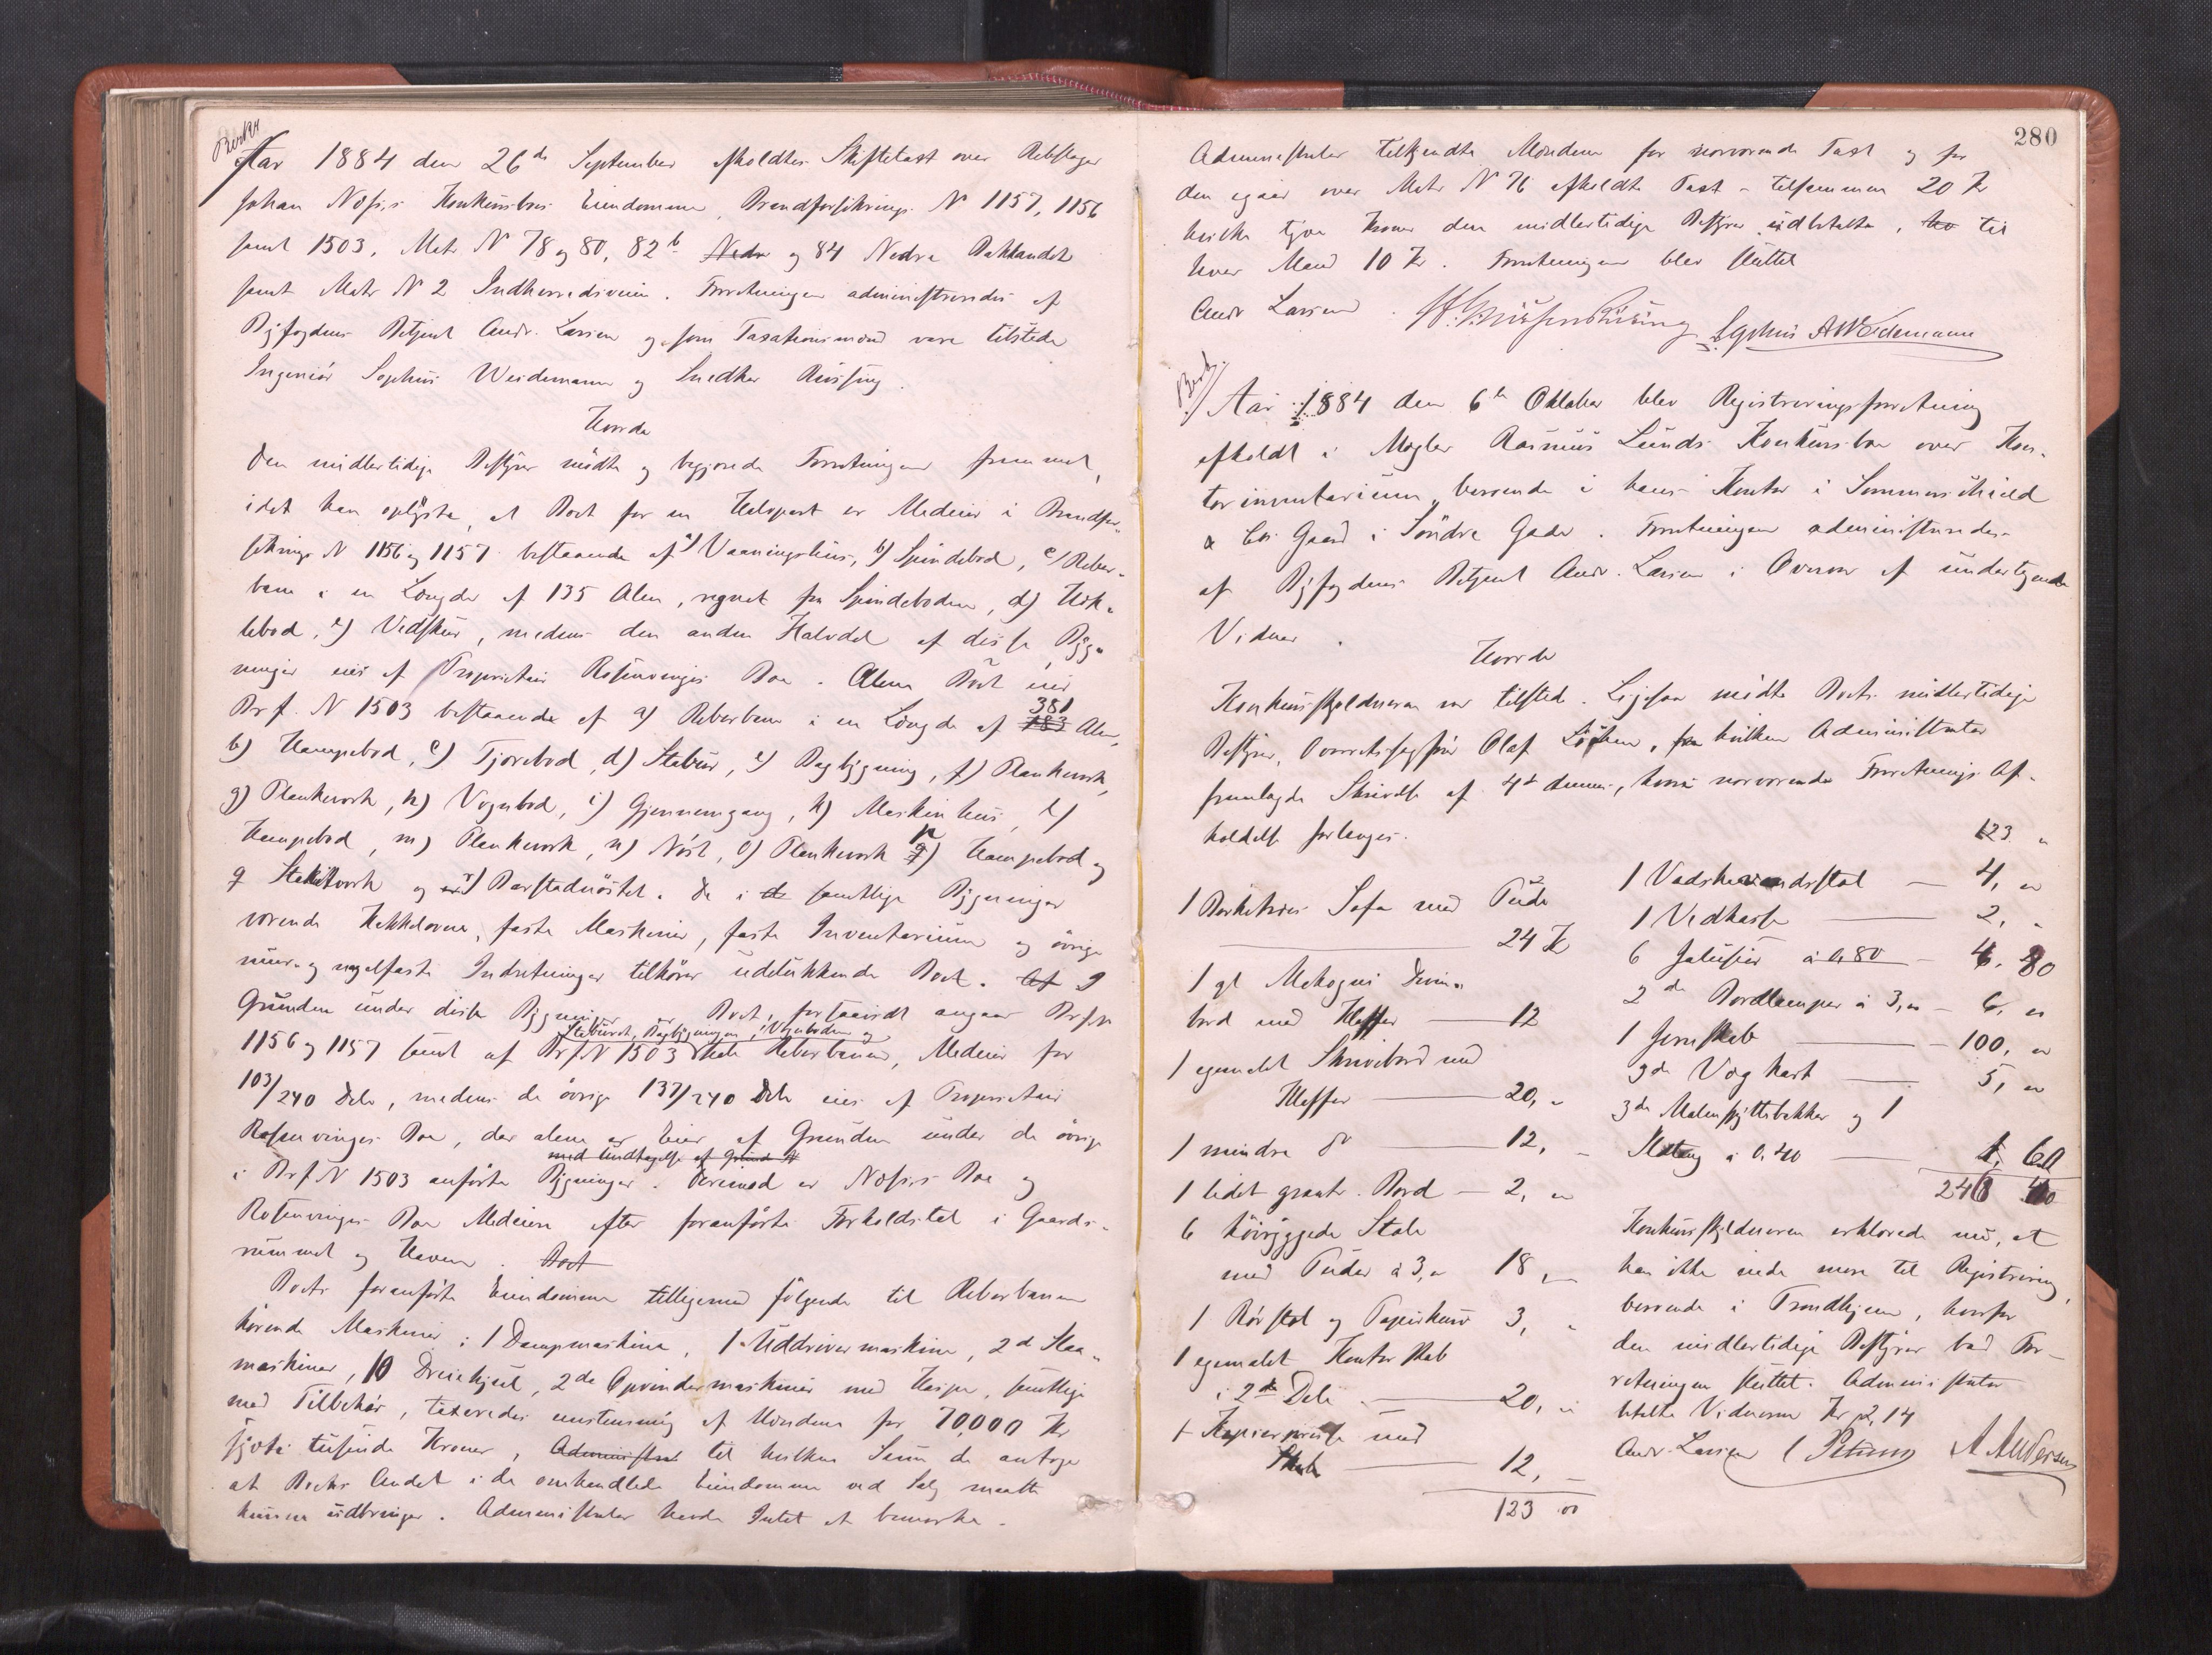 Aar 1884 den 26de September afholdtes Skiftetaxt over Rebslager
Johan Næss's Konkursboes Eiendomme, Brandforsikrings N 1157, 1156
samt 1503, Matr N 78 og 80, 82b Nedr og 84 Nedre Baklandet
samt Matr N 2 Indherredsveien. Forretningen administreredes af
Byfogdens Betjent Andr. Larsen og som Taxationsmænd vare tilstede
Ingeniør Sophus Weidemann og Snedker Buising.
Hvorda
Den midlertidige Bestyrer mødte og begjærede Forretningen fremmet,
idet han oplyste, at Boet for en Halvpart er Medeier i Brandfor-
sikrings N 1156 og 1157 bestaaende af a) Vaaningshus, b) Spindebod, c) Reber-
bane i en Længde af 135 Alen, regnet fra Spindeboden, d) Hek-
lebod, e) Vedskur, medens den anden Halvdel af disse Byg-
ninger eies af Proprietær Rosenvinges Boe. Alene Boet eier
Brf. N 1503 bestaaende af a) Reberbane i en Længde af 183 381 Alen,
b) Hampebod, c) Tjærebod, d) Stabur, e) Bagbygning, f) Plankeværk,
g) Plankeværk, h) Vognbod, i) Gjennemgang, k) Maskinhus, l)
Hampebod, m) Plankeværk, n) Nøst, o) Plankeværk p) Hampebod og
q Stakitværk og r) Barstadnøstet. De i de samtlige Bygninger
værende Kakkelovne, faste Maskiner, faste Inventarium og øvrige
mur- og nagelfaste Indretninger tilhører udelukkende Boet. Af I
Grunden under disse Bygninger er Boet, forsaavidt angaar Brf N
Staburet, Bagbygningen, Vognboden og
1156 og 1157 samt af Brf N 1503 hele Reberbanen, Medeier for
103/240 Dele, medens de øvrige 137/240 Dele eies af Proprietær
Rosenvinges Boe, der alene er Eier af Grunden under de øvrige
med Undtagelse af Grund N
i Brf N 1503 anførte Bygninger. Derimod er Næss's Boe og
Rosenvinges Boe Medeiere efter foranførte Forholdstal i Gaards-
rummet og Haven. Boet
Boets foranførte Eiendomme tilligemed følgende til Reberbanen
hørende Maskiner: 1 Dampmaskine, 1 Uddrivermaskine, 2d Slaa-
maskiner, 10 Dreiehjul, 2de Opvindermaskiner med Haspe, samtlige
med Tilbehør, taxeredes enstemmig af Mændene for 70,000 Kr
sjøti tusinde Kroner, Administrat til hvilken Sum de antoge
at Boets Andel i de omhandlede Eiendomme ved Salg maatte
kunne udbringes. Administrator havde Intet at bemærke.
280
Administrator tilkjendte Mændene for nærværende Taxt og for
den igaar over Matr N 76 afholdte Taxt – tilsammen 20 Kr
hvilke tyve Kroner den midlertidige Bestyrer udbetalte, til
hver Mand 10 Kr. Forretningen blev sluttet
Andr Larsen. Sophus A Weidemann
Aar 1884 den 6te Oktober blev Registreringsforretning
afholdt i Mægler Rasmus Lunds Konkursbo over Kon-
torinventarium, beroende i hans Kontor i Sommerschield
& Co's Gaard i Søndre Gade. Forretningen administreredes
af Byfogdens Betjent Andr. Larsen i Overvær af undertegnede
Vidner.
Hvorda
Konkursskyldneren var tilstede. Ligesaa mødte Boets midlertidige
Bestyrer, Overretssagfører Olaf Løchen, fra hvilken Administrator
fremlagde Skrivelse af 4de dennes, hvori nærværende Forretnings Af-
holdelse forlanges.
1 Birketræes Sofa med Pude
24 Kr
1 gl Mahogni Skrive-
bord med Skuffer — 12
1 egemalet Skrivebord med
Skuffer — 20, -
1 mindre do — 12, -
1 lidet graat. Bord — 2, -
6 høiryggede Stole
med Puder à 3, - 18, -
1 Rørstol og Papirkurv 3, -
1 egemalet Kontorskab
i 2de Dele — 20, -
1 Kopierpresse med
Skab — 12, -
123 00
123 "
1 Vadskevandsstol — 4, "
1 Vedkasse — 2, "
6 Jalusier à 0,80 — 4. 80
2de Bordlamper à 3, - — 6, "
1 Jernskab — 100, "
3de Væg kart — 5, "
3de og 1
à 0.40 — 1, 60
246 40
Konkursskyldneren erklærede nu, at
han ikke eiede mere til Registrering,
beroende i Trondhjem, hvorfor
den midlertidige Bestyrer bad For-
retningen sluttet. Administrator
betalte Vidnerne Kr 2,14
Andr. Larsen A Andersen